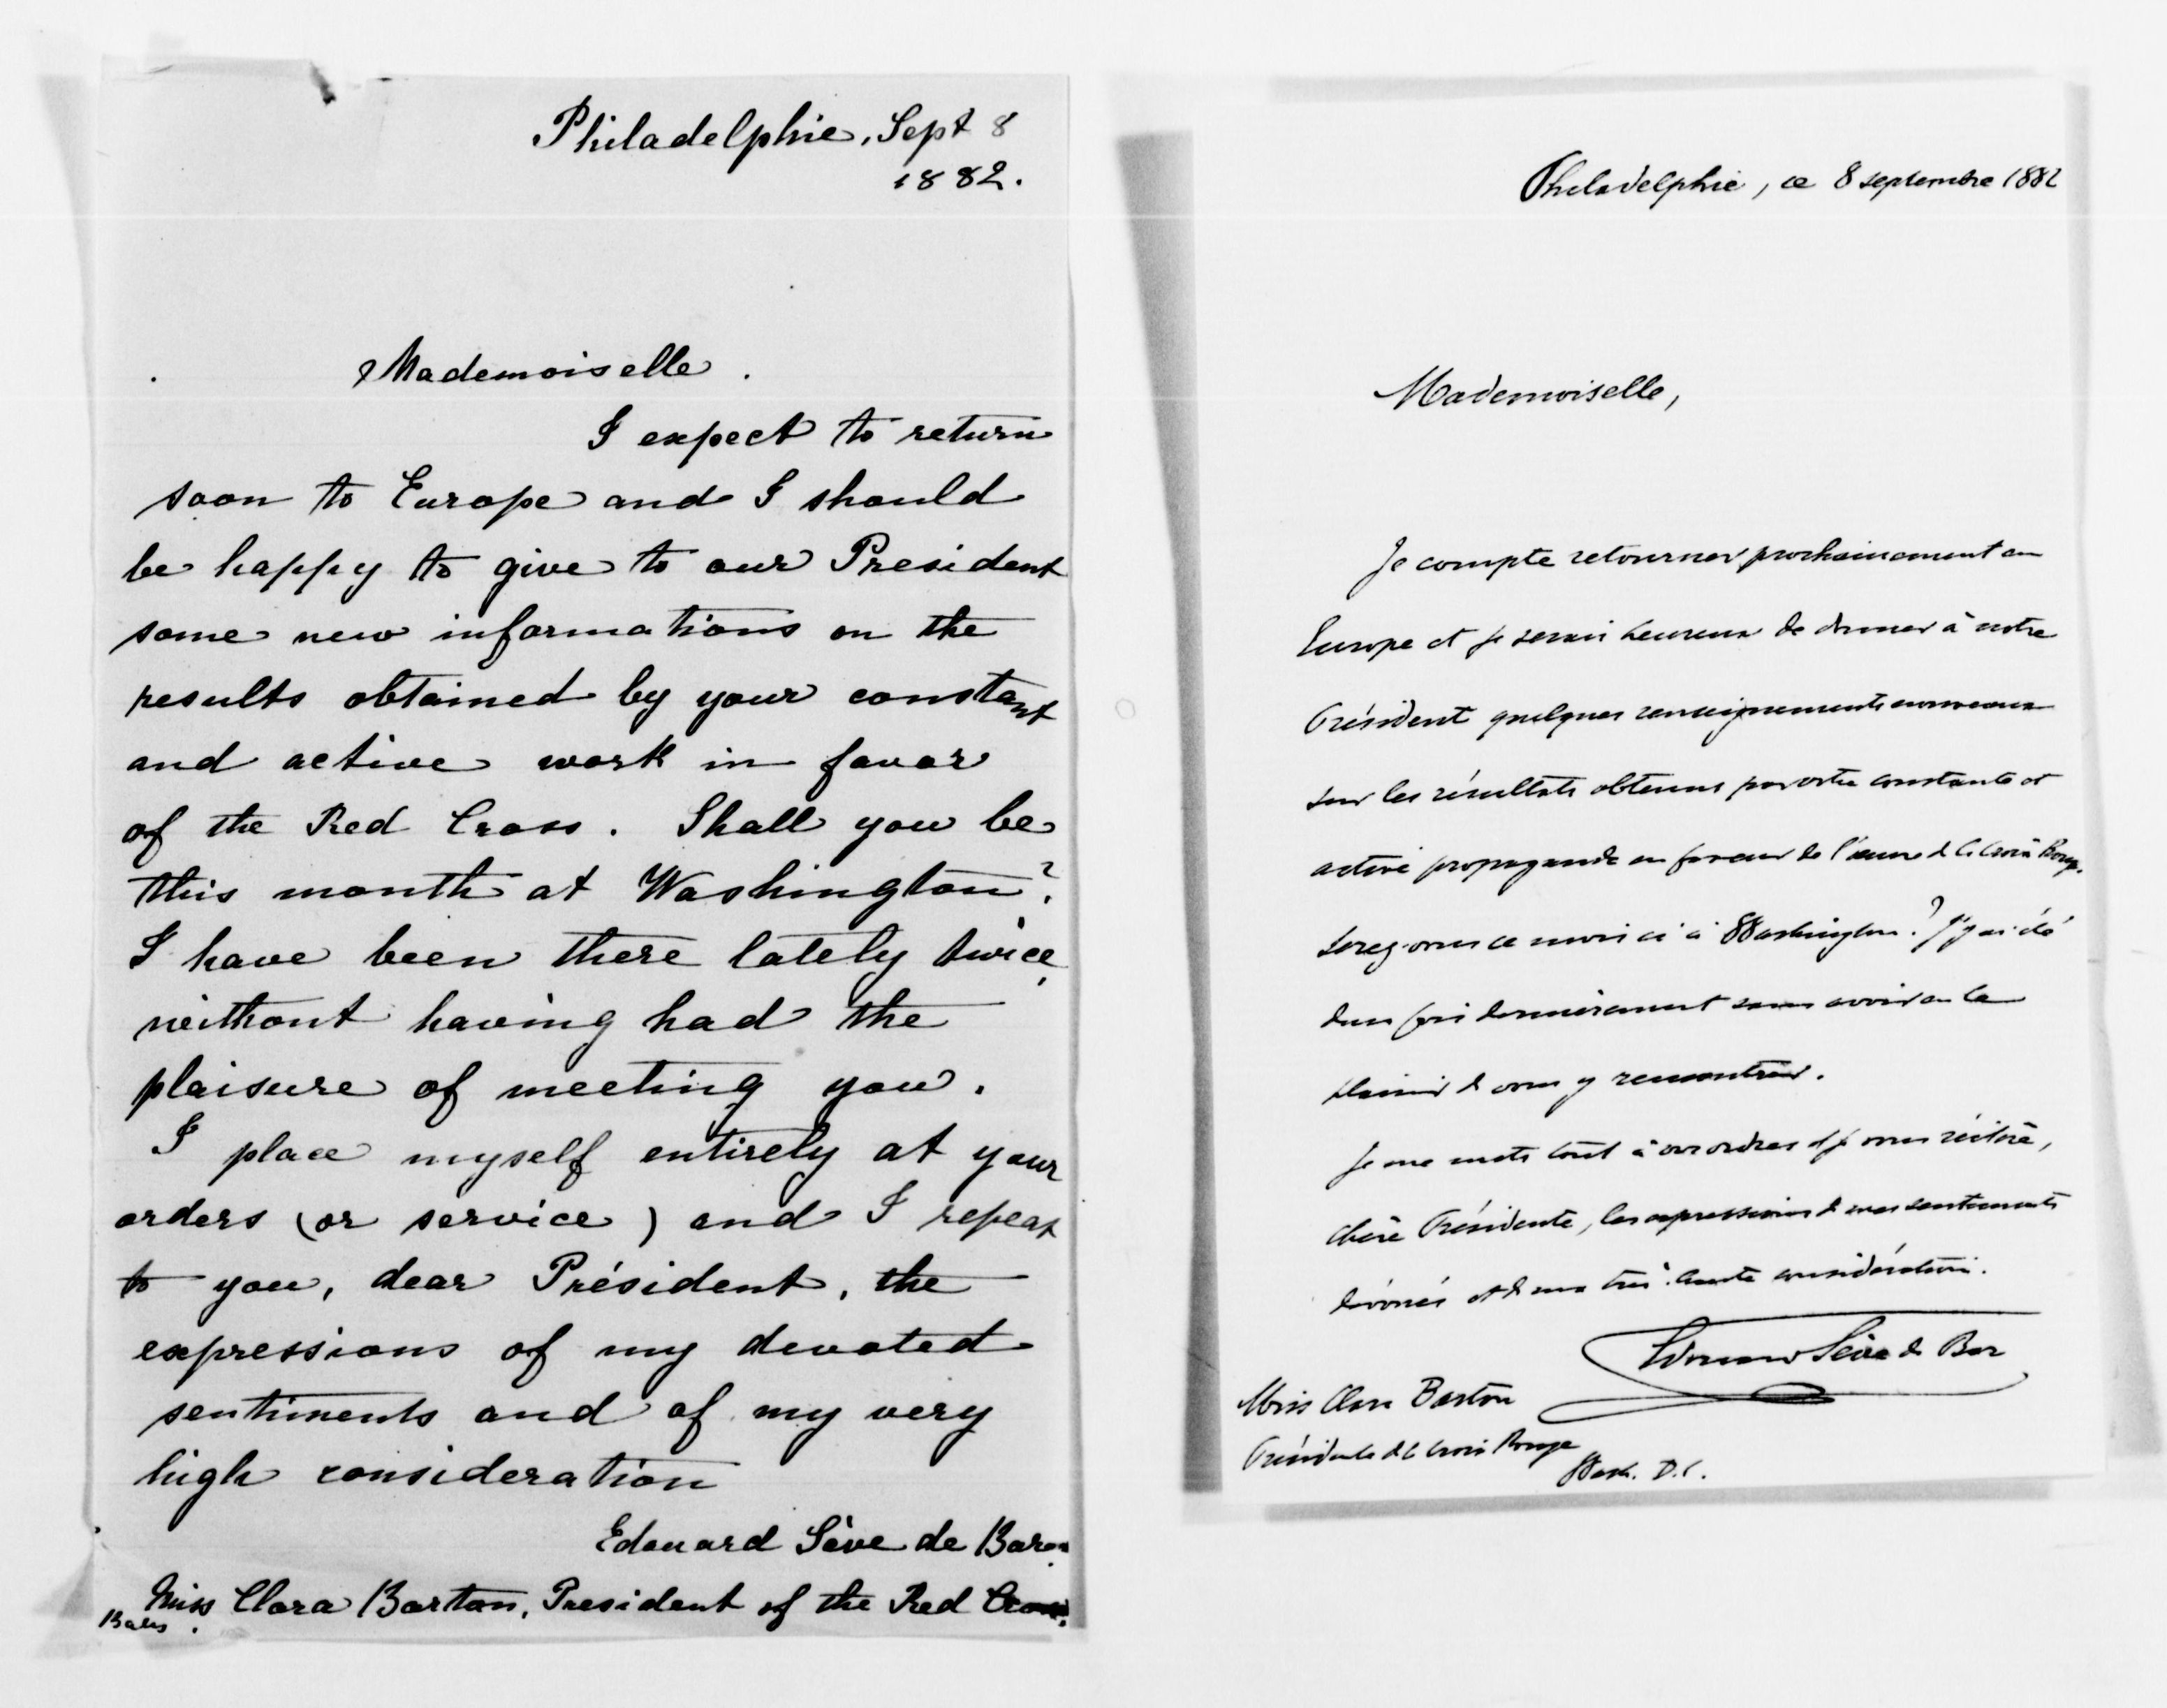 Philadelphie, Sept 8
1882.
Mademoiselle.
I expect to return
soon to Europe and I should
be happy to give to our President
some new informations on the
results obtained by your constant
and active work in favor
of the Red Cross. Shall you be
this month at Washington?
I have been there lately twice,
without having had the
plaisure of meeting you.
I place myself entirely at your
orders (or service) and I repeat
to you, dear Président, the
expressions of my devoted
sentiments and of my very
high consideration
Edouard Sève de Baron
Miss Clara Barton, President of the Red Cross.
Philadelphie, ce 8 septembre 1882
Mademoiselle,
Je compte retourner prochainement en
Europe et je serais heureux de donner à notre
Président quelques renseignements nouveaux
sur les résultats obtenus par votre constante et
active propagande en faveur de l'œuvre de la Croix Rouge.
Serez-vous ce mois ci à Washington? J'y ai été
deux fois dernièrement sans avoir eu le
plaisir de vous y rencontrer.
Je me mets tout à vos ordres et je vous réitère,
chère Présidente, les expressions de mes sentiments
dévoués et de ma très haute considération.
Edouard Sève de Bar
Miss Clara Barton
Présidente de la Croix Rouge
Wash. D.C.